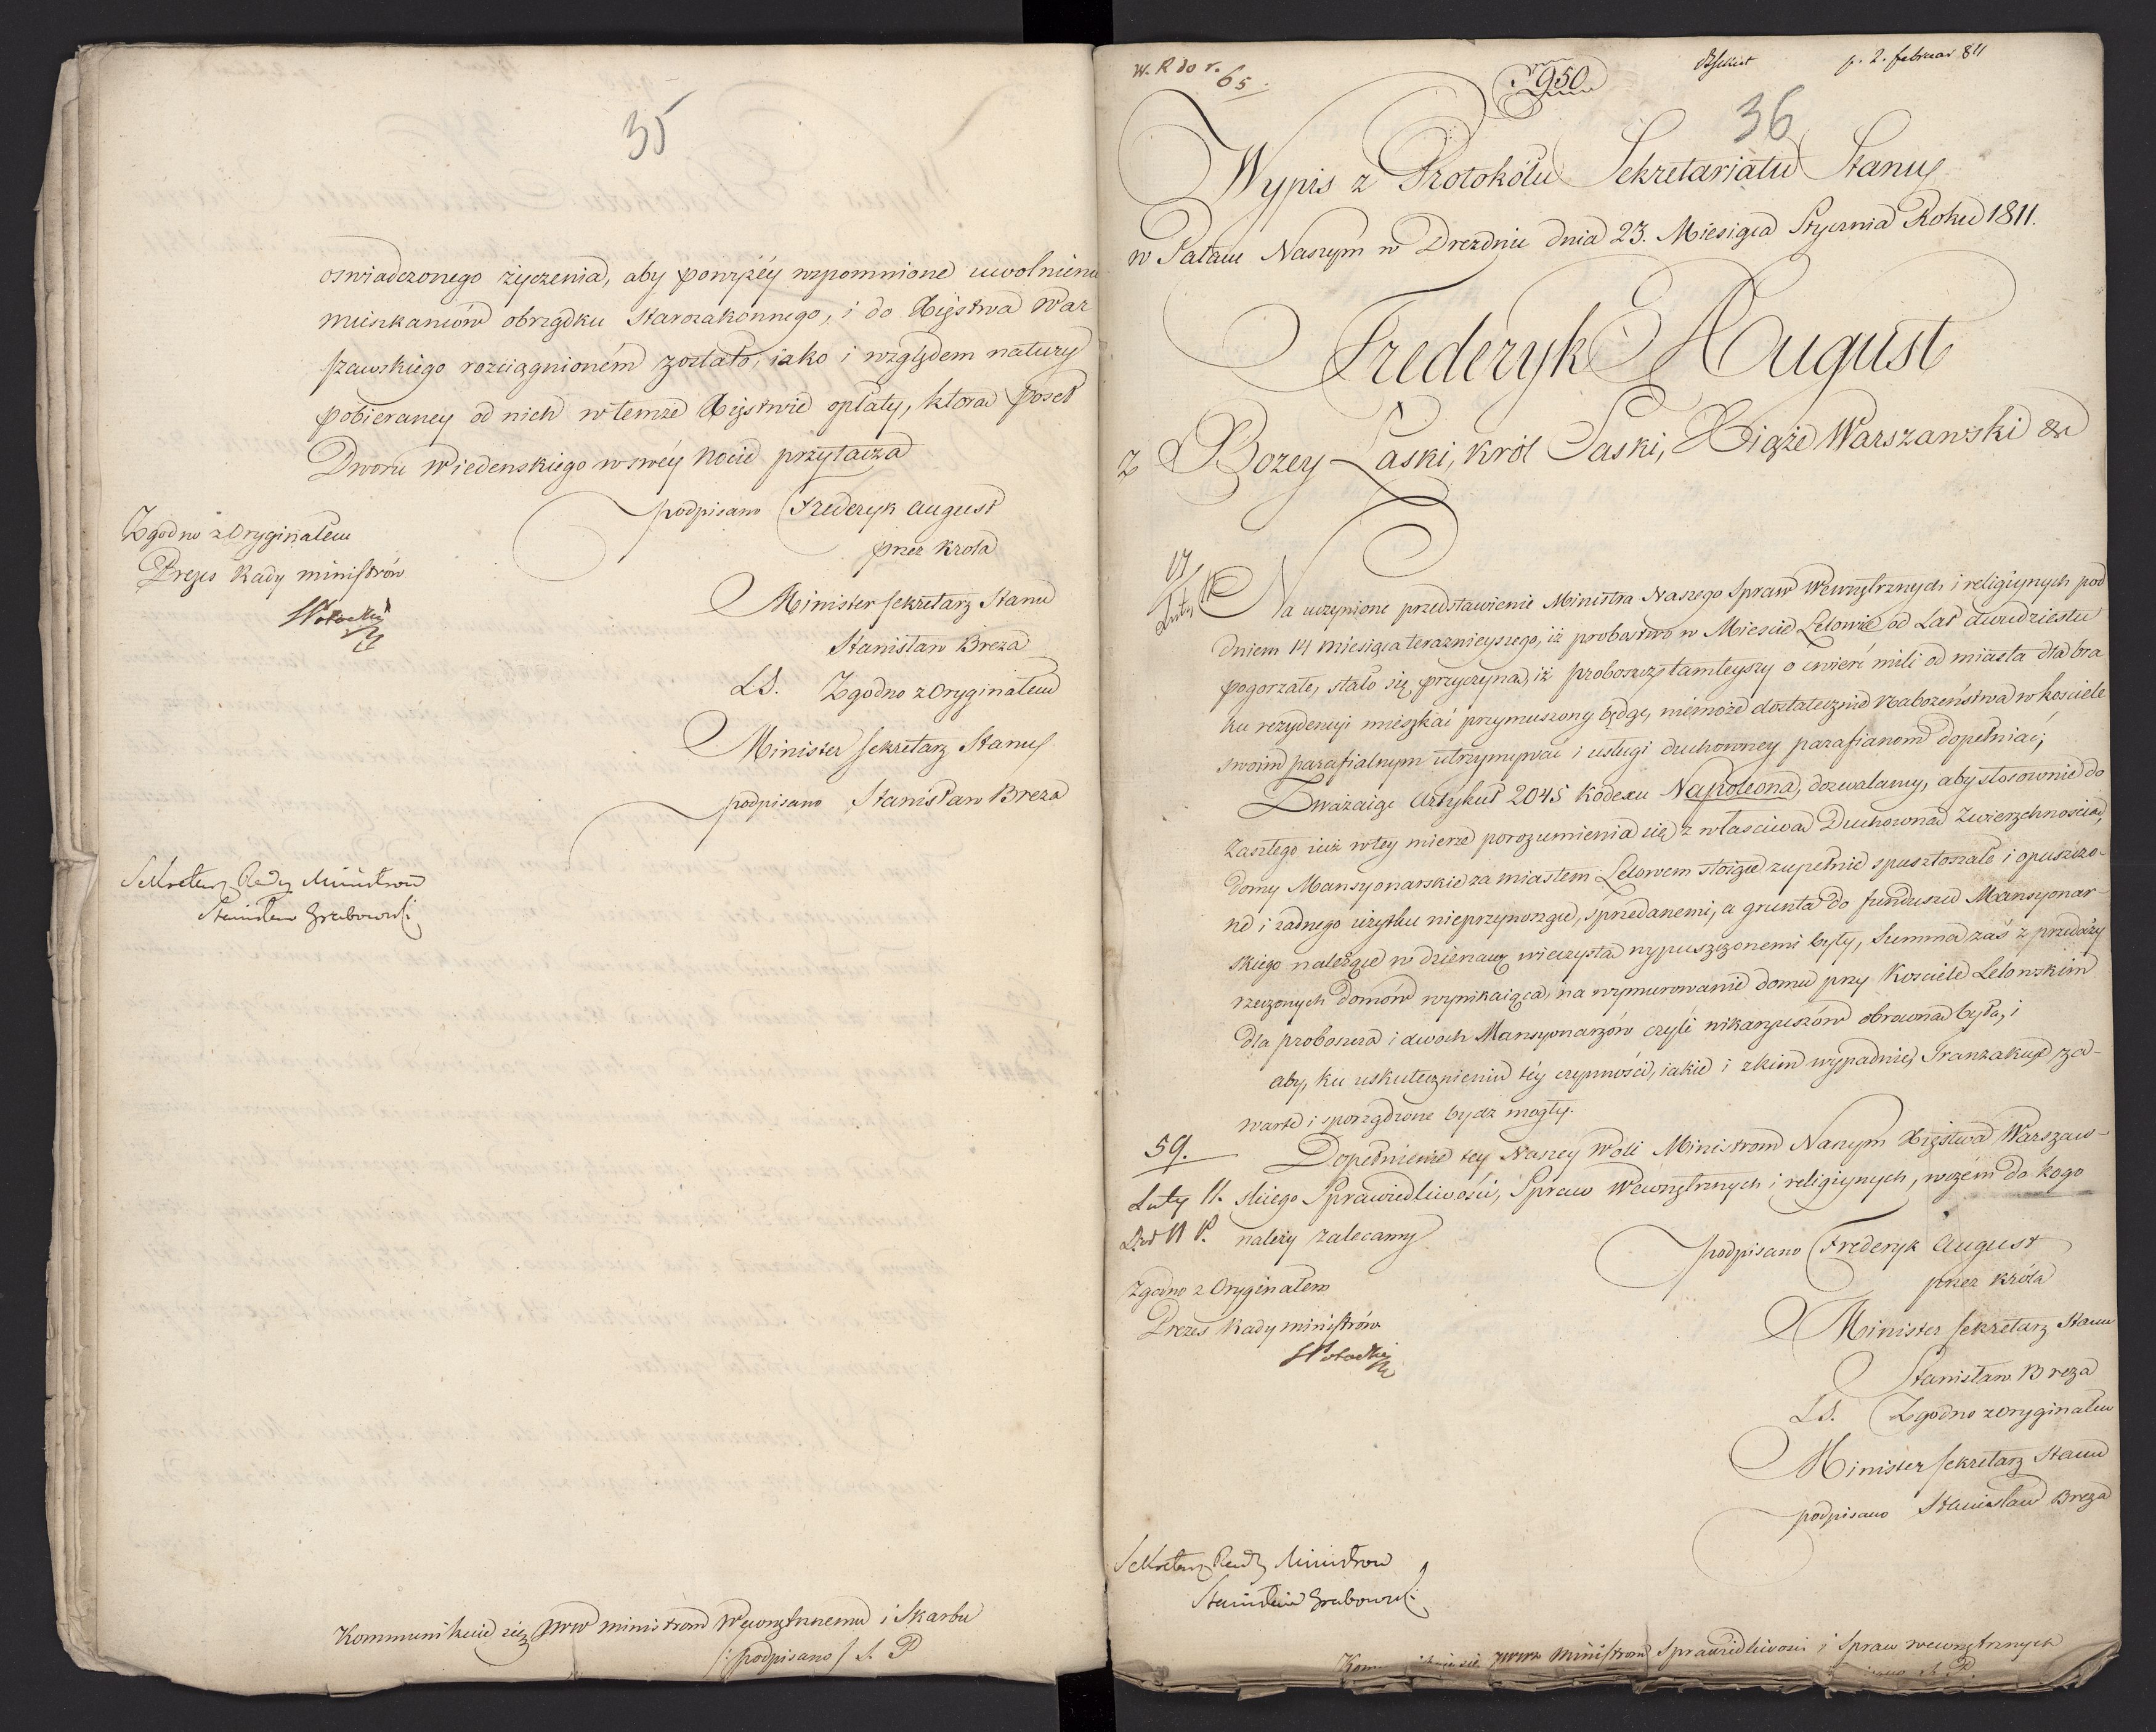 35
oswiadczonego życzenia, aby powyżéy wzpomnione uwolnienie
mieszkancow obrządku Starozakonnego, i do Xięstwa War
szawskiego rozciągnioném zostało, iako i względem natury
pobieraney od nich w temże Xięstwie opłaty, ktora Poseł
Dworu Wiedenskiego w swéy Nocie przytacza
podpisano Frederyk August
przez Krola
Minister Sekretarz Stanu
Stanisław Breza
LS. Zgodno z Oryginałem
Minister Sekretarz Stanu
podpisano Stanisław Breza
Zgodno z Oryginałem
Prezes Rady ministrów
SPotocki
Sekretarz Rady Ministrow
Stanisław Grabowski
Kommunikuie się JWW ministrom Wewnętrznemu i Skarbu
/: podpisano / S. P
W. R do r. 65.
950
p. 2. februar 811
36
Wypis z Protokółu Sekretariatu Stanu
w Pałacu Naszym w Drezdnie dnia 23. Miesiąca Stycznia Roku 1811.
Frederyk August
z Bozey Łaski, Król Saski, Xiąże Warszawski &c
Luty
Na uczynione przedstawienie Ministra Naszego Spraw Wewnętrznych i religiynych pod
dniem 14 miesiąca teraznieyszego, iż probostwo w Miescie Lelowie od Lat dwudziestu
pogorzałe, stało się przyczyną, iż proboszcz tamteyszy o cwierć mili od miasta dla bra
ku rezydencyi mieszkać przymuszony będąc, niemoże dostatecznie Nabożeństwa w kosciele
swoim parafialnym utrzymywać i usługi duchowney parafianom dopełniać;
Zważaiąc Artykuł 2045 Kodexu Napoleona, dozwalamy, aby stosownie do
zaszłego iuż w tey mierze porozumienia się z własciwą Duchowną Zwierzchnoscią,
domy Mansyonarskie za miastem Lelowem stoiące zupełnie spustoszałe i opuszczo-
ne i żadnego użytku nieprzynoszące, sprzedanemi, a grunta do funduszu Mansyonar-
skiego należące w dzierzawę wieczystą wypuszczonemi były, Summa zaś z przedaży
rzeczonych domów wynikaiąca, na wymurowanie domu przy Kosciele Lelowskim
dla proboszcza i dwoch Mansyonarzów czyli wikaryuszów obrocona była, i
aby, ku uskutecznieniu téy czynności, iakie i z kim wypadnie, Tranzakcye za-
warte i sporządzone bydz mogły.
59. Dopełnienie tey Naszey Woli Ministrom Naszym Xięstwa Warszaw-
Luty 11. skiego Sprawiedliwości, Spraw Wewnętrznych i religiynych, wczém do kogo
należy zalecamy
podpisano Frederyk August
przez Króla
Minister Sekretarz Stanu
Stanisław Breza
LS. Zgodno z Oryginałem
Minister Sekretarz Stanu
podpisano Stanisław Breza
Zgodno z Oryginałem
Prezes Rady ministrów
SPotocki
Sekretarz Rady Ministrow
Stanisław Grabowski
się JWW Ministrom Sprawiedliwosci i Spraw wewnętrznych
S. P.